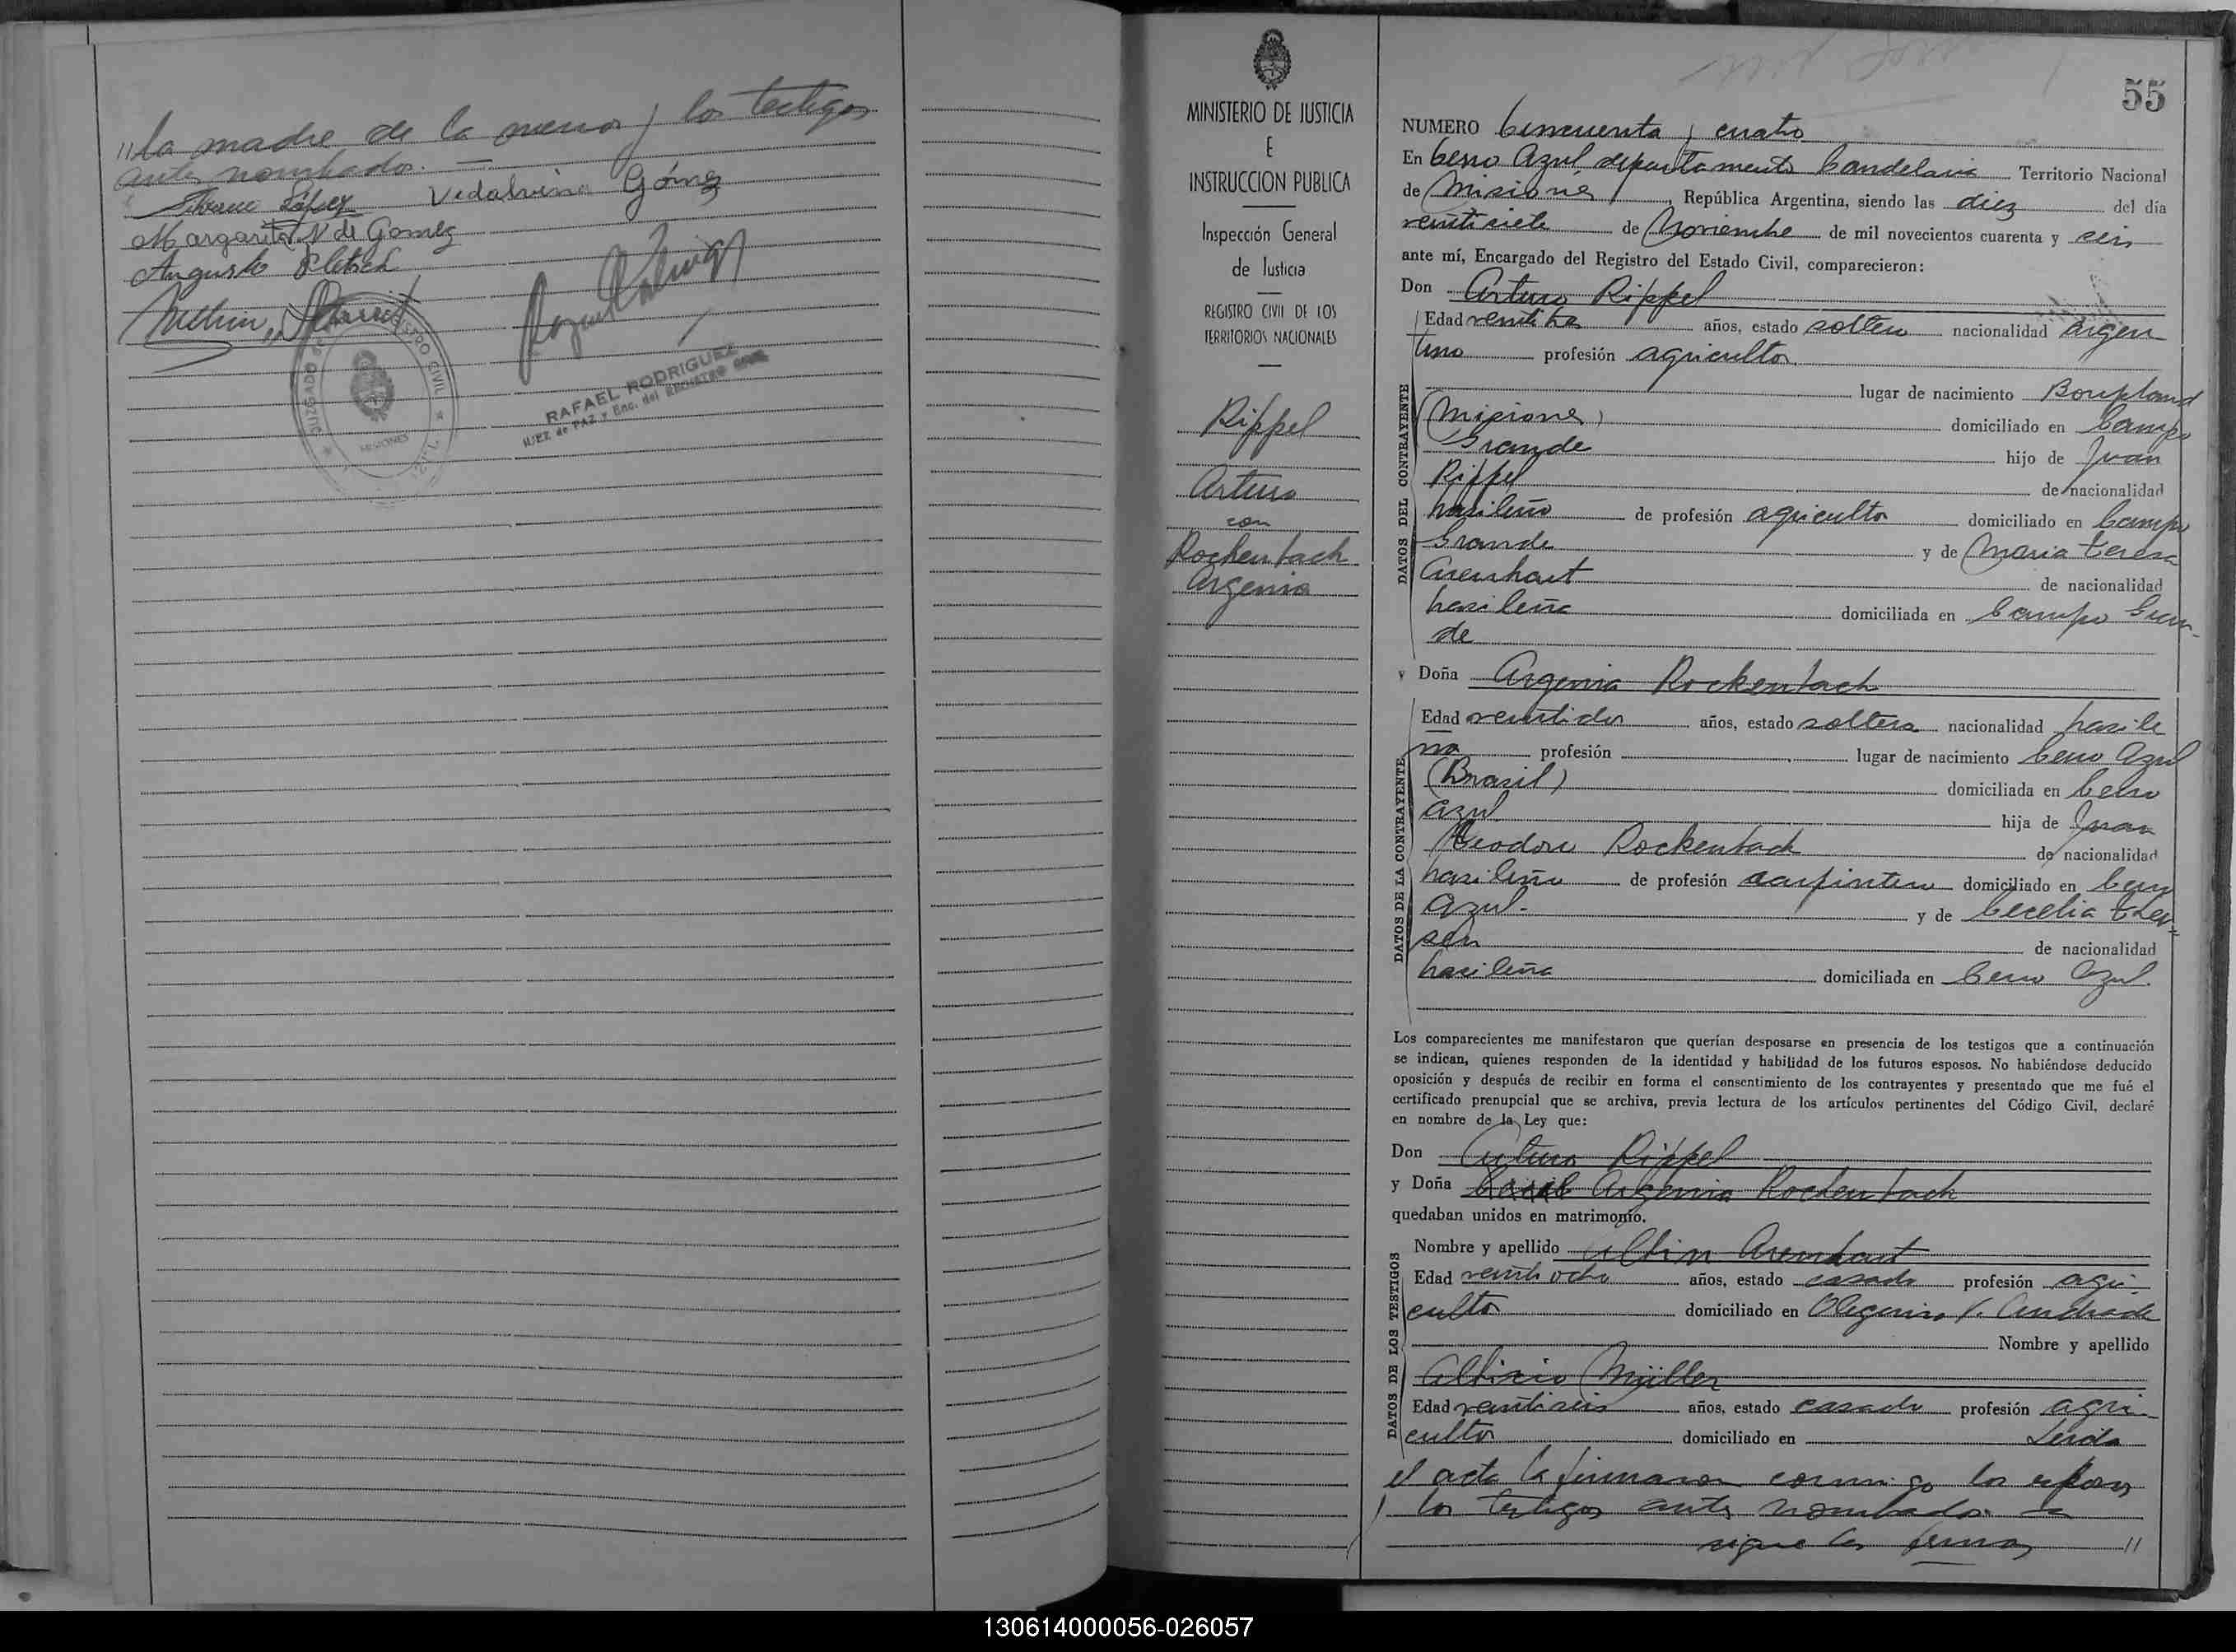 "la madre de la menor y los testigos
antes nombrados. —
López Vedalvina Gómez
Margarita V. de Gomez
Augusto Pletsch
JUZGADO DE REGISTRO CIVIL
MISIONES
RAFAEL RODRIGUEZ
JUEZ de PAZ y Enc. del REGISTRO CIVIL
MINISTERIO DE JUSTICIA
E
INSTRUCCION PUBLICA
Inspección General
de Justicia
REGISTRO CIVIL DE LOS
TERRITORIOS NACIONALES
Rippel
Arturo
con
Rockenbach
Argenia
55
NUMERO Cincuenta y cuatro
En Cerro Azul departamento Candelaria Territorio Nacional
de Misiones, República Argentina, siendo las diez del día
veintisiete de Noviembre de mil novecientos cuarenta y seis
ante mí, Encargado del Registro del Estado Civil, comparecieron:
Don Arturo Rippel
DATOS DEL CONTRAYENTE
Edad veintitres años, estado soltero nacionalidad argen
tino profesión agricultor
lugar de nacimiento Bonpland
(Misiones) domiciliado en Campo
Grande hijo de Juan
Rippel de nacionalidad
brasileño de profesión agricultor domiciliado en Campo
Grande y de Maria Teresa
Arenhart de nacionalidad
brasileña domiciliada en Campo Gran-
de
y Doña Argenia Rockenbach
DATOS DE LA CONTRAYENTE
Edad veintidos años, estado soltera nacionalidad brasile
ña profesión lugar de nacimiento Cerro Azul
(Brasil) domiciliada en Cerro
Azul hija de Juan
Teodoro Rockenbach de nacionalidad
brasileño de profesión carpintero domiciliado en Cerro
Azul. y de Cecelia
de nacionalidad
brasileña domiciliada en Cerro Azul.
Los comparecientes me manifestaron que querían desposarse en presencia de los testigos que a continuación
se indican, quienes responden de la identidad y habilidad de los futuros esposos. No habiéndose deducido
oposición y después de recibir en forma el consentimiento de los contrayentes y presentado que me fué el
certificado prenupcial que se archiva, previa lectura de los artículos pertinentes del Código Civil, declaré
en nombre de la Ley que:
Don Arturo Rippel
y Doña Argenia Rockenbach
quedaban unidos en matrimonio.
DATOS DE LOS TESTIGOS
Nombre y apellido Albin Arenhart
Edad veintiocho años, estado casado profesión agri-
cultor domiciliado en Olegario V. Andrade
Nombre y apellido
Albizio Müller
Edad veintiseis años, estado casado profesión agri-
cultor domiciliado en Leida
el acta la firmaron conmigo los esposos
y los testigos antes nombrados
sigue las firmas "
130614000056-026057